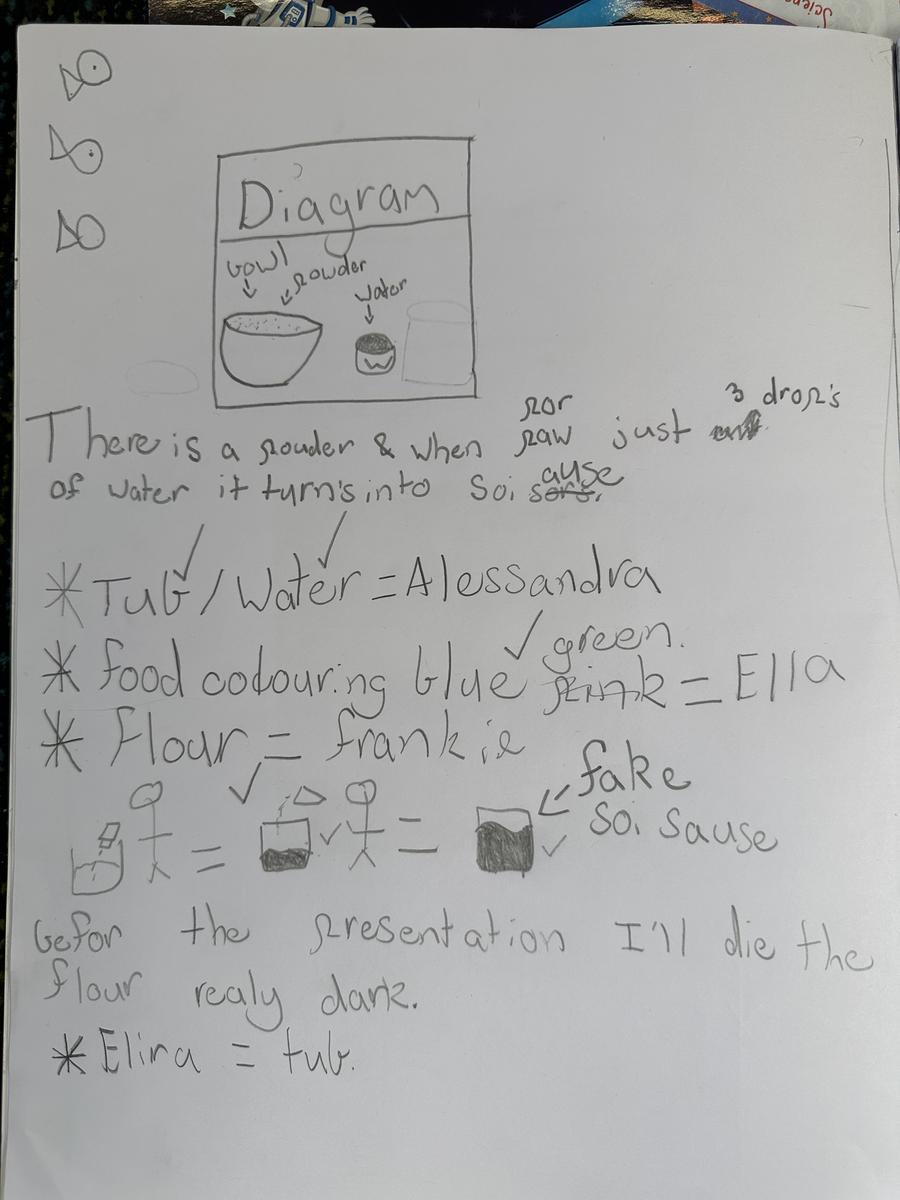 Scien
Diagram
bowl
powder
water
W
por 3 drop's
There is a powder & when paw just
ause
of water it turn's into Soi sors.
* Tub / Water = Alessandra
green.
* food colouring blue pink = Ella
* Flour = frankie
fake
soi sause
befor the presentation I'll die the
flour realy dark.
* Elira = tub.